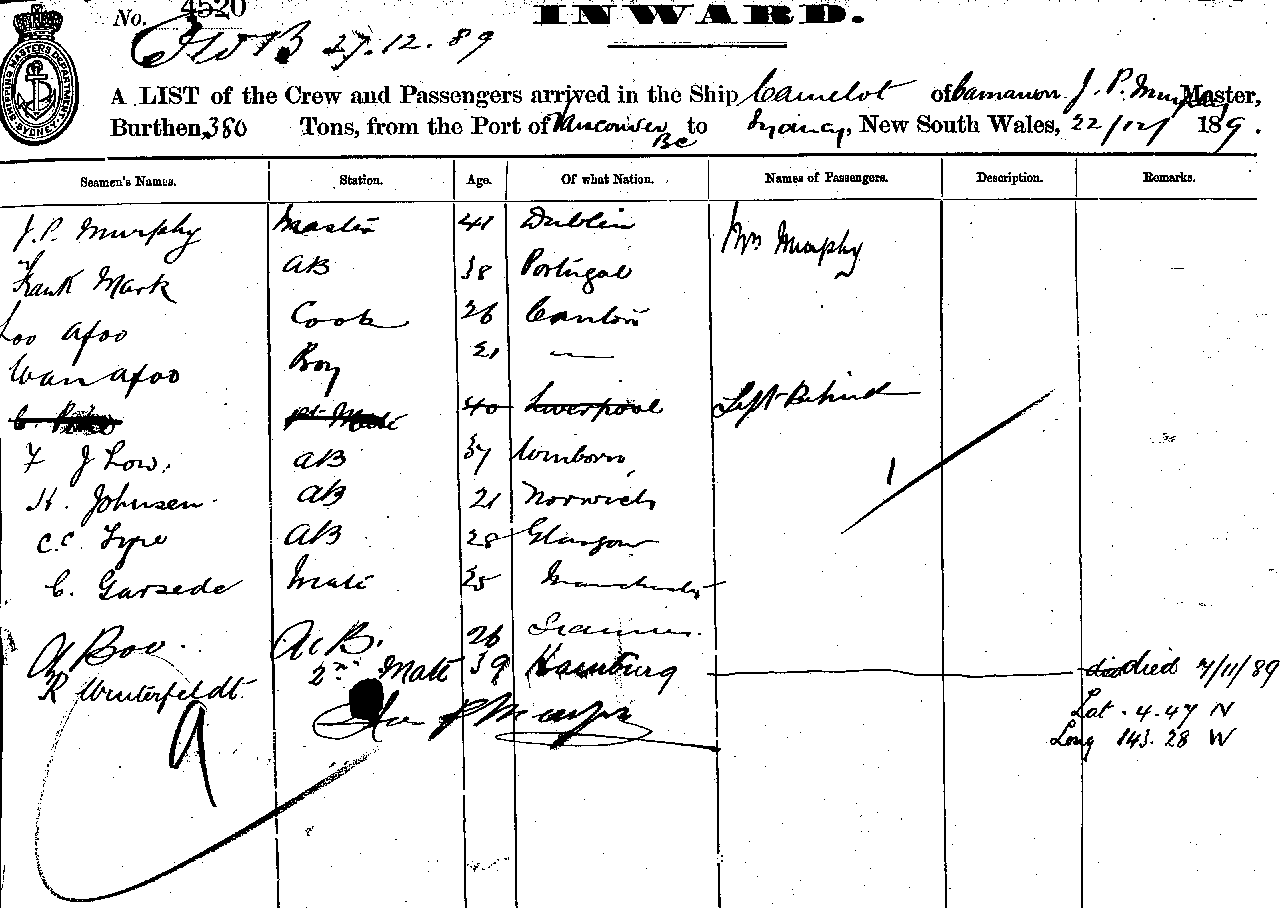 No. 4520
INWARD.
27.12.89
SHIPPING MASTERS DEPARTMENT SYDNEY
A LIST of the Crew and Passengers arrived in the Ship Camelot of Carnarvon J. P. Murphy Master,
Burthen, 380 Tons, from the Port of Vancouver BC to Sydney, New South Wales, 22/12/ 189.
Seamen's Names. Station. Age. Of what Nation. Names of Passengers. Description. Remarks.
J.P. Murphy Master 41 Dublin Mrs Murphy
Frank Mark AB 38 Portugal
Loo Afoo Cook 26 Canton
Wan Afoo Boy 21 —
Mate 40 Liverpool Left Behind
F J Low. AB 37
H. Johnsen AB 21 Norwich
C.C. AB 28 Glasgow
C. Garsede Mate 25 Manchester
A Boo A.B. 26
R Winterfeldt 2nd Mate 39 Hamburg died 7/11/89
Lat. 4.47 N
Long 143.28 W
9
1